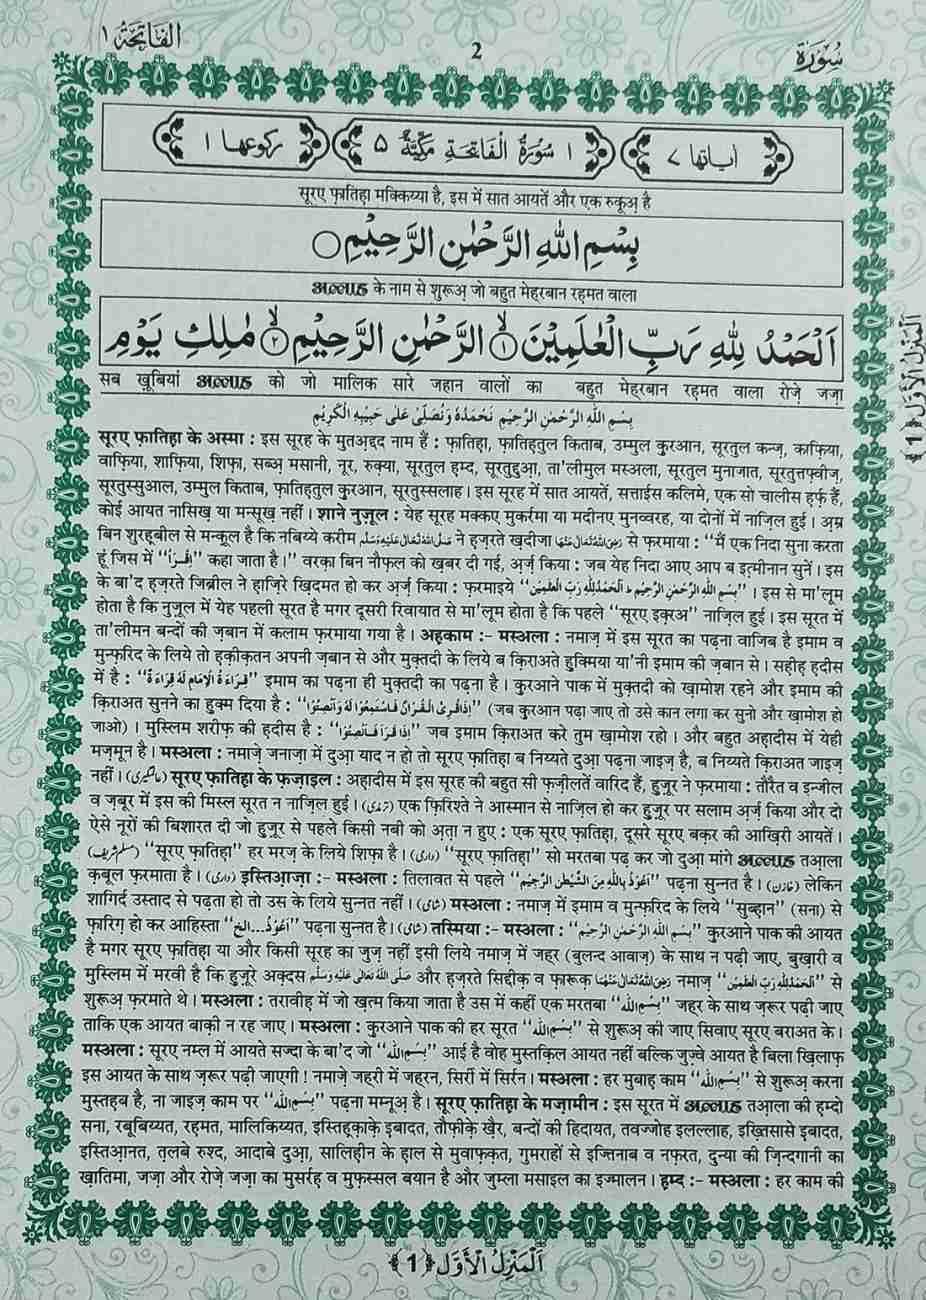 سُوْرَة 2 الفَاتِحَة ١
اٰیاتھا ٧ ١ سُوْرَةُ الْفَاتِحَةِ مَكِّيَّةٌ ٥ رکوعھا ١
सूरए फ़ातिहा मक्किय्या है, इस में सात आयतें और एक रुकूअ़ है
بِسْمِ اللّٰهِ الرَّحْمٰنِ الرَّحِيْمِ
अल्लाह के नाम से शुरूअ़ जो बहुत मेहरबान रहमत वाला
اَلْحَمْدُ لِلّٰهِ رَبِّ الْعٰلَمِيْنَ ۙ﴿١﴾ الرَّحْمٰنِ الرَّحِيْمِ ۙ﴿٢﴾ مٰلِكِ يَوْمِ
सब ख़ूबियां अल्लाह को जो मालिक सारे जहान वालों का बहुत मेहरबान रहमत वाला रोज़े जज़ा
بِسْمِ اللّٰهِ الرَّحْمٰنِ الرَّحِيْمِ نَحْمَدُهٗ وَ نُصَلِّيْ عَلٰى حَبِيْبِهِ الْكَرِيْمِ
सूरए फ़ातिहा के अस्मा : इस सूरह के मुतअ़द्दद नाम हैं : फ़ातिहा, फ़ातिहतुल किताब, उम्मुल कुरआन, सूरतुल कन्ज़, काफ़िया,
वाफ़िया, शाफ़िया, शिफ़ा, सब्अ़ मसानी, नूर, रुक्या, सूरतुल हम्द, सूरतुद्दुआ, ता'लीमुल मस्अला, सूरतुल मुनाजात, सूरतुत्तफ्वीज़,
सूरतुस्सुआल, उम्मुल किताब, फ़ातिहतुल कुरआन, सूरतुस्सलाह। इस सूरह में सात आयतें, सत्ताईस कलिमे, एक सो चालीस हर्फ़ हैं,
कोई आयत नासिख़ या मन्सूख़ नहीं। शाने नुज़ूल : येह सूरह मक्कए मुकर्रमा या मदीनए मुनव्वरह, या दोनों में नाज़िल हुई। अम्र
बिन शुरह़बील से मन्कूल है कि नबिय्ये करीम صَلَّى اللّٰهُ تَعَالٰى عَلَيْهِ وَسَلَّم ने हज़रते ख़दीजा رَضِيَ اللّٰهُ تَعَالٰى عَنْهَا से फ़रमाया : "मैं एक निदा सुना करता
हूं जिस में "اِقْرَاْ" कहा जाता है।" वरक़ा बिन नौफ़ल को ख़बर दी गई, अ़र्ज़ किया : जब येह निदा आए आप ब इत़्मीनान सुनें। इस
के बा'द हज़रते जिब्रील ने ह़ाज़िरे ख़िदमत हो कर अ़र्ज़ किया : फ़रमाइये "بِسْمِ اللّٰهِ الرَّحْمٰنِ الرَّحِيْمِ ط اَلْحَمْدُ لِلّٰهِ رَبِّ الْعٰلَمِيْنَ"। इस से मा'लूम
होता है कि नुज़ूल में येह पहली सूरत है मगर दूसरी रिवायात से मा'लूम होता है कि पहले "सूरए इक़रअ" नाज़िल हुई। इस सूरत में
ता'लीमन बन्दों की ज़बान में कलाम फ़रमाया गया है। अह़काम :- मस्अला : नमाज़ में इस सूरत का पढ़ना वाजिब है इमाम व
मुन्फ़रिद के लिये तो ह़क़ीक़तन अपनी ज़बान से और मुक़्तदी के लिये ब क़िराअते हुक्मिया या'नी इमाम की ज़बान से। सह़ीह़ ह़दीस
में है : "قِرَاءَةُ الْاِمَامِ لَهٗ قِرَاءَةٌ" इमाम का पढ़ना ही मुक़्तदी का पढ़ना है। कुरआने पाक में मुक़्तदी को ख़ामोश रहने और इमाम की
क़िराअत सुनने का हुक्म दिया है : "اِذَا قُرِئَ الْقُرْاٰنُ فَاسْتَمِعُوْا لَهٗ وَ اَنْصِتُوْا" (जब कुरआन पढ़ा जाए तो उसे कान लगा कर सुनो और ख़ामोश हो
जाओ)। मुस्लिम शरीफ़ की ह़दीस है : "اِذَا قَرَاَ فَاَنْصِتُوْا" जब इमाम क़िराअत करे तुम ख़ामोश रहो। और बहुत अह़ादीस में येही
मज़्मून है। मस्अला : नमाज़े जनाज़ा में दुआ़ याद न हो तो सूरए फ़ातिहा ब निय्यते दुआ़ पढ़ना जाइज़ है, ब निय्यते क़िराअत जाइज़
नहीं। (عالمگیری) सूरए फ़ातिहा के फ़ज़ाइल : अह़ादीस में इस सूरह की बहुत सी फ़ज़ीलतें वारिद हैं, हुज़ूर ने फ़रमाया : तौरैत व इन्जील
व ज़बूर में इस की मिस्ल सूरत न नाज़िल हुई। (ترمذی) एक फ़िरिश्ते ने आस्मान से नाज़िल हो कर हुज़ूर पर सलाम अ़र्ज़ किया और दो
ऐसे नूरों की बिशारत दी जो हुज़ूर से पहले किसी नबी को अ़त़ा न हुए : एक सूरए फ़ातिहा, दूसरे सूरए बक़र की आख़िरी आयतें।
(مسلم شریف) "सूरए फ़ातिहा" हर मरज़ के लिये शिफ़ा है। (دارمی) "सूरए फ़ातिहा" सो मरतबा पढ़ कर जो दुआ़ मांगे अल्लाह तआ़ला
क़बूल फ़रमाता है। (دارمی) इस्तिआ़ज़ा :- मस्अला : तिलावत से पहले "اَعُوْذُ بِاللّٰهِ مِنَ الشَّيْطٰنِ الرَّجِيْمِ" पढ़ना सुन्नत है। (خازن) लेकिन
शागिर्द उस्ताद से पढ़ता हो तो उस के लिये सुन्नत नहीं। (شامی) मस्अला : नमाज़ में इमाम व मुन्फ़रिद के लिये "सुब्ह़ान" (सना) से
फ़ारिग़ हो कर आहिस्ता "اَعُوْذُ...الخ" पढ़ना सुन्नत है। (شامی) तस्मिया :- मस्अला : "بِسْمِ اللّٰهِ الرَّحْمٰنِ الرَّحِيْمِ" कुरआने पाक की आयत
है मगर सूरए फ़ातिहा या और किसी सूरह का जुज़ नहीं इसी लिये नमाज़ में जहर (बुलन्द आवाज़) के साथ न पढ़ी जाए, बुख़ारी व
मुस्लिम में मरवी है कि हुज़ूरे अक़्दस صَلَّى اللّٰهُ تَعَالٰى عَلَيْهِ وَسَلَّم और हज़रते सिद्दीक़ व फ़ारूक़ رَضِيَ اللّٰهُ تَعَالٰى عَنْهُمَا नमाज़ "اَلْحَمْدُ لِلّٰهِ رَبِّ الْعٰلَمِيْنَ" से
शुरूअ़ फ़रमाते थे। मस्अला : तरावीह़ में जो ख़त्म किया जाता है उस में कहीं एक मरतबा "بِسْمِ اللّٰه" जहर के साथ ज़रूर पढ़ी जाए
ताकि एक आयत बाक़ी न रह जाए। मस्अला : कुरआने पाक की हर सूरत "بِسْمِ اللّٰه" से शुरूअ़ की जाए सिवाए सूरए बराअत के।
मस्अला : सूरए नम्ल में आयते सज्दा के बा'द जो "بِسْمِ اللّٰه" आई है वोह मुस्तक़िल आयत नहीं बल्कि जुज़्वे आयत है बिला ख़िलाफ़
इस आयत के साथ ज़रूर पढ़ी जाएगी ! नमाज़े जहरी में जहरन, सिर्री में सिर्रन। मस्अला : हर मुबाह़ काम "بِسْمِ اللّٰه" से शुरूअ़ करना
मुस्तह़ब है, ना जाइज़ काम पर "بِسْمِ اللّٰه" पढ़ना मम्नूअ़ है। सूरए फ़ातिहा के मज़ामीन : इस सूरत में अल्लाह तआ़ला की ह़म्दो
सना, रबूबिय्यत, रह़मत, मालिकिय्यत, इस्तिह़क़ाक़े इबादत, तौफ़ीक़े ख़ैर, बन्दों की हिदायत, तवज्जोह इलल्लाह, इख़्तिसासे इबादत,
इस्तिआ़नत, त़लबे रुश्द, आदाबे दुआ़, सालिह़ीन के ह़ाल से मुवाफ़क़त, गुमराहों से इज्तिनाब व नफ़रत, दुन्या की ज़िन्दगानी का
ख़ातिमा, जज़ा और रोज़े जज़ा का मुसर्रह़ व मुफ़स्सल बयान है और जुम्ला मसाइल का इज्मालन। ह़म्द :- मस्अला : हर काम की
اَلْمَنْزِلُ الْاَوَّل ﴿1﴾
اَلْمَنْزِلُ الْاَوَّل ﴿1﴾